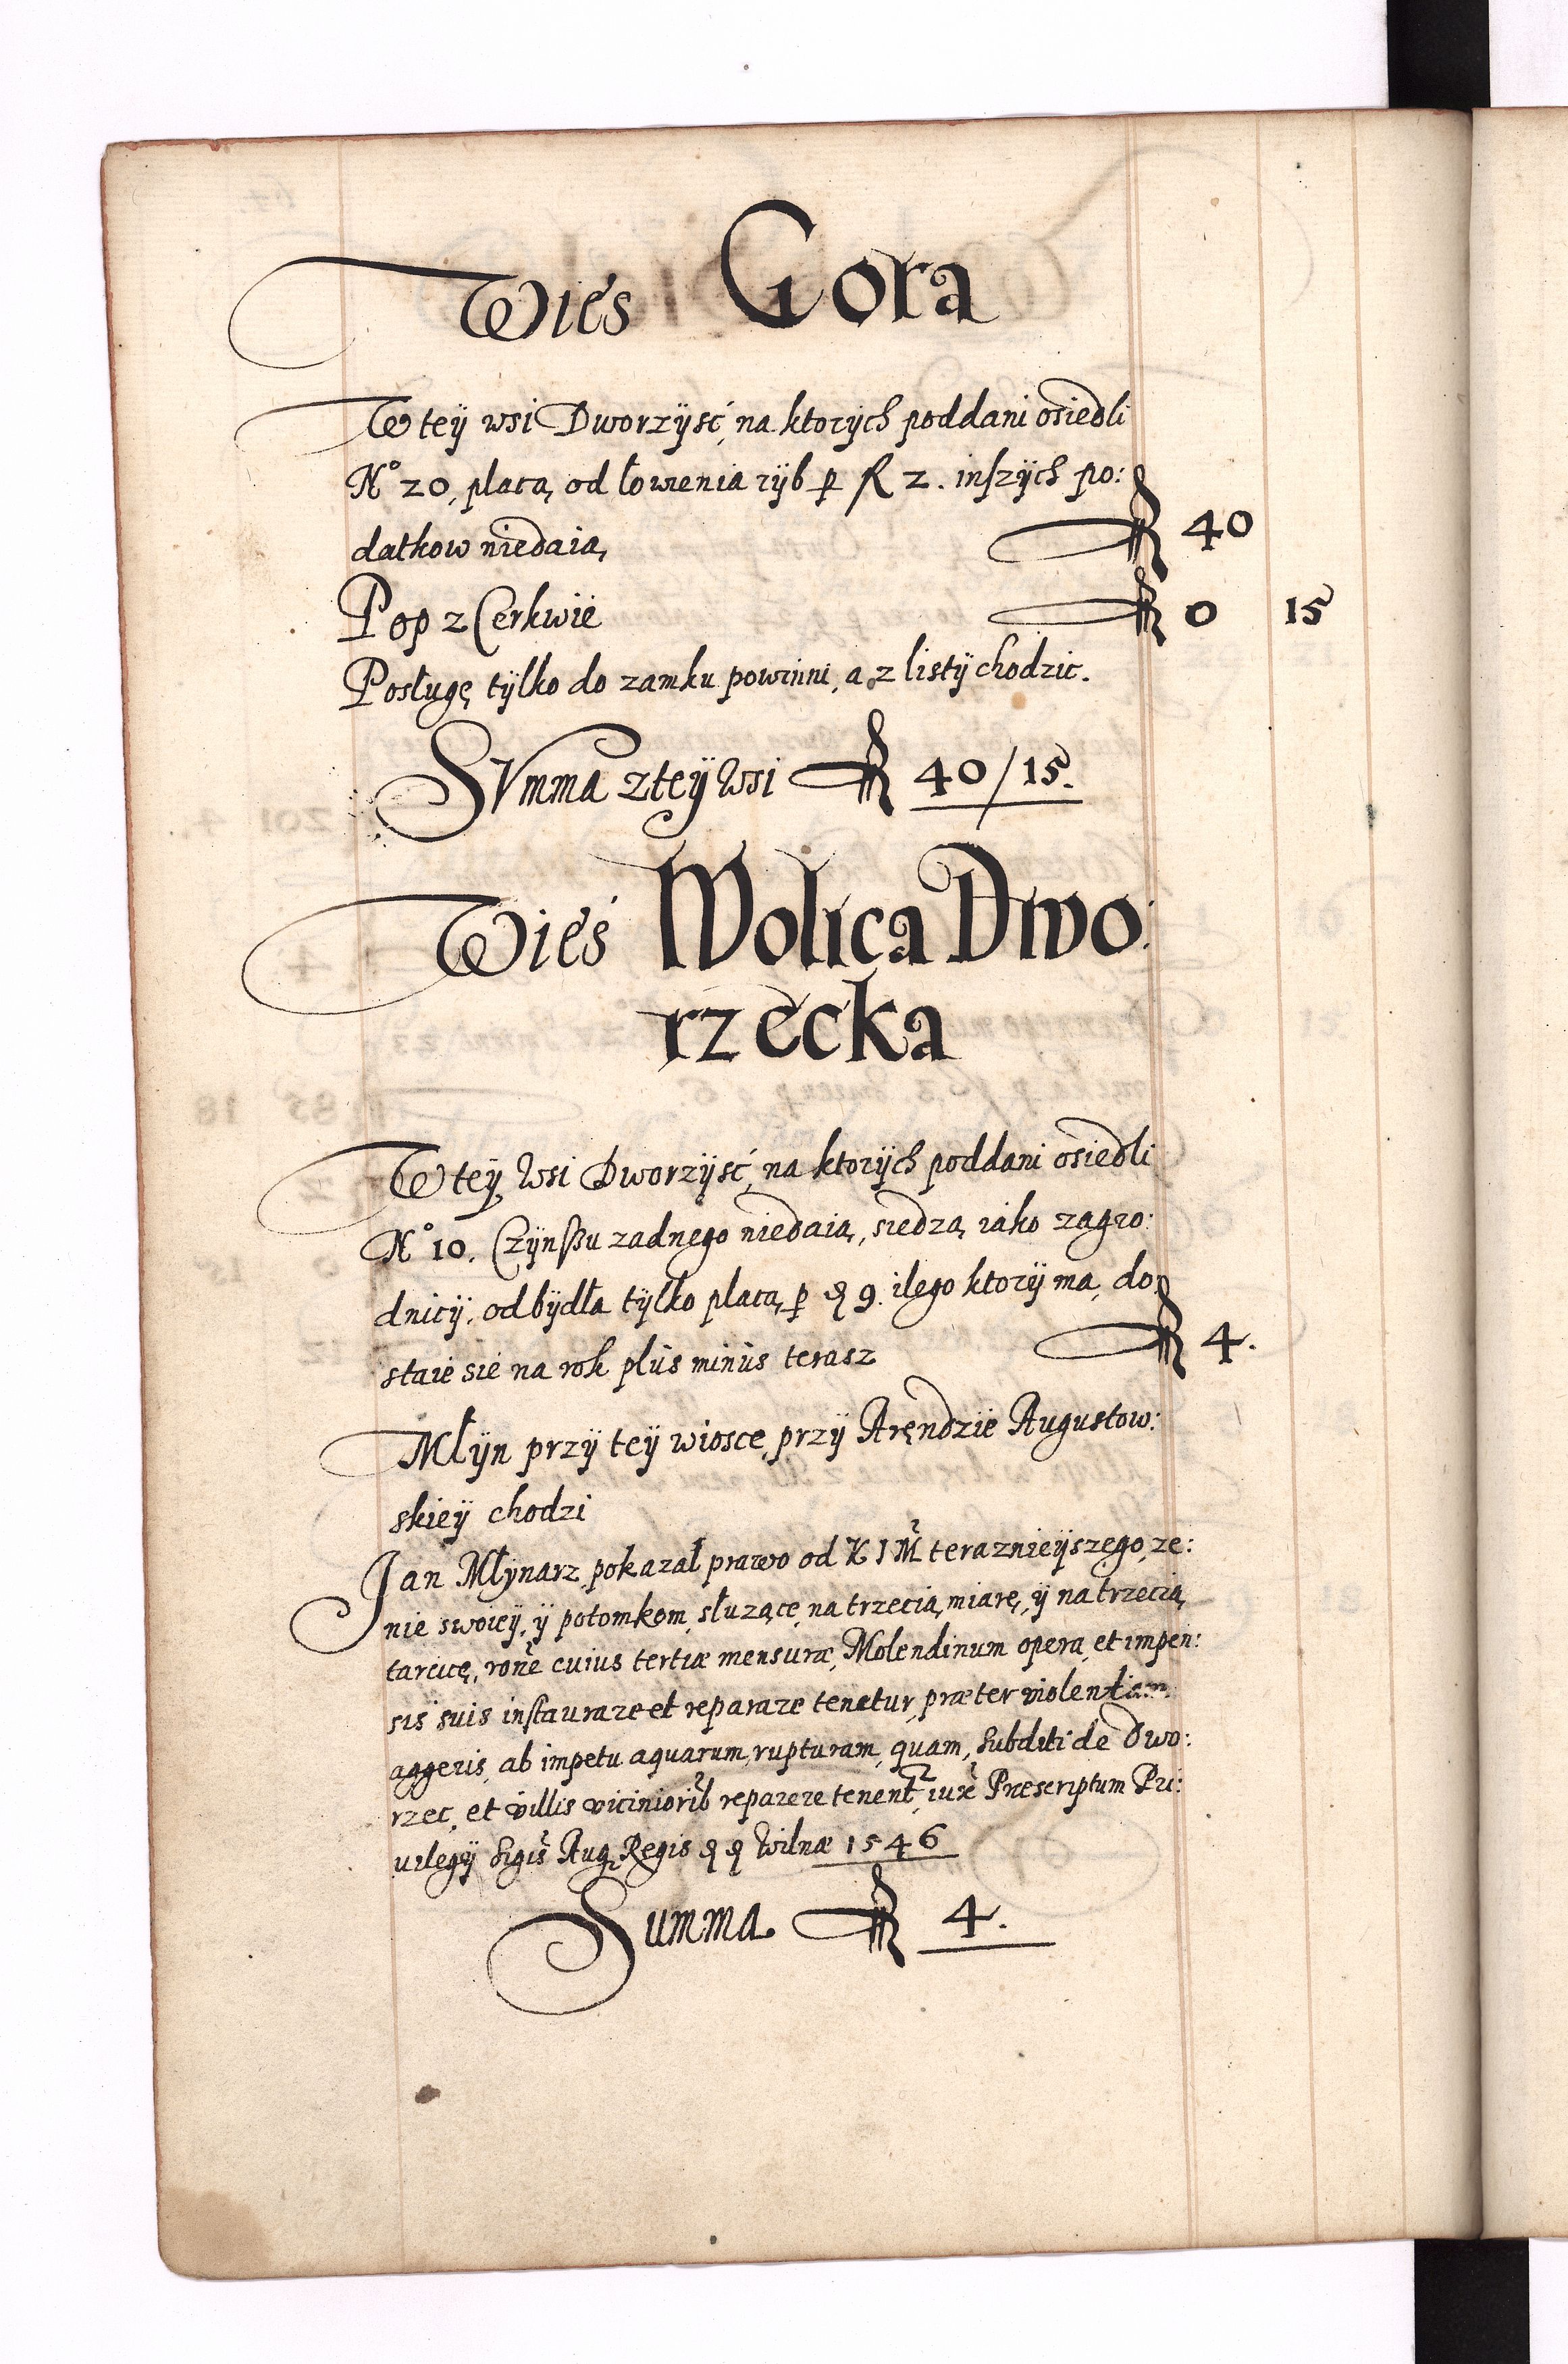 Wieś Gora
W teÿ wsi Dworzÿsć, na ktorÿch poddani osiedli
No 20, płacą, od łowienia rÿb p fl 2. inszÿch po:
datkow niedaią, fl 40
Pop z Cerkwie fl 0 15
Posługę tÿlko do zamku powinni, a z listÿ chodzic.
SVmma z teÿ wsi fl 40/15.
Wieś Wolica Dwo:
rzecka
W teÿ wsi Dworzÿsć, na ktorÿch poddani osiedli
No 10. Czÿnszu zadnego niedaią, siedzą iako zagro:
dnicÿ, od bÿdła tÿlko płacą p g 9. ilego ktorÿ ma, do
staie sie na rok plus minus terasz fl 4.
Młÿn przÿ teÿ wiosce, przÿ Arędzie Augustow:
skieÿ chodzi
Jan Młÿnarz, pokazał prawo od K J M teraznieÿszego, ze:
nie swoieÿ, ÿ potomkom, słuzącę, na trzecią miarę, ÿ na trzecią
tarcicę, rone cuius tertiæ mensuræ, Molendinum opera, et impen:
sis suis instaurare et reparare tenetur, præter violentam
aggeris, ab impetu aquarum, rupturam, quam, Subditi de Dwo:
rzec, et villis viciniorib reparere tenent, iux Præscriptum Pri:
uilegÿ Sigis Aug Regis Wilnæ 1546
Summa fl 4.